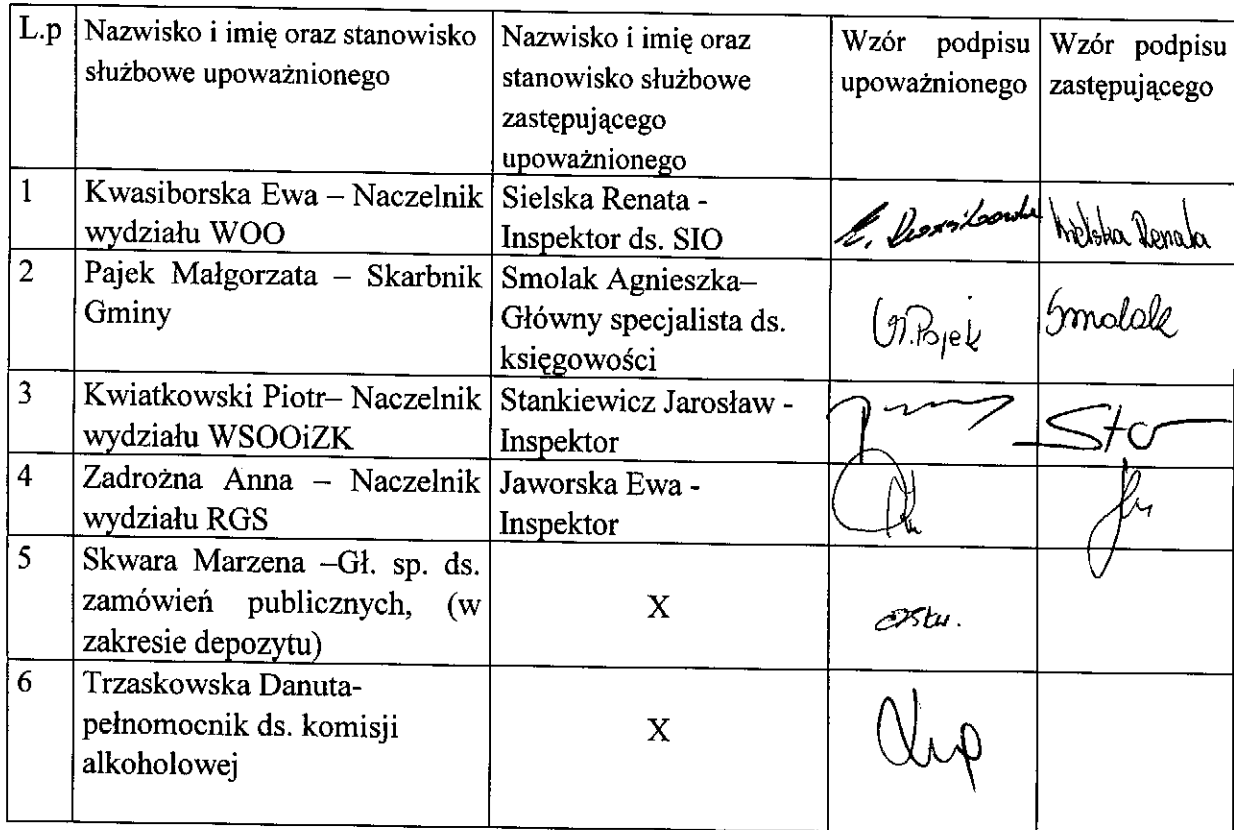 L.p
Nazwisko i imię oraz stanowisko
służbowe upoważnionego
Nazwisko i imię oraz
stanowisko służbowe
zastępującego
upoważnionego
Wzór podpisu
upoważnionego
Wzór podpisu
zastępującego
1
Kwasiborska Ewa – Naczelnik
wydziału WOO
Sielska Renata -
Inspektor ds. SIO
Sielska Renata
2
Pajek Małgorzata – Skarbnik
Gminy
Smolak Agnieszka–
Główny specjalista ds.
księgowości
M.Pajek
Smolak
3
Kwiatkowski Piotr– Naczelnik
wydziału WSOOiZK
Stankiewicz Jarosław -
Inspektor
4
Zadrożna Anna – Naczelnik
wydziału RGS
Jaworska Ewa -
Inspektor
5
Skwara Marzena –Gł. sp. ds.
zamówień publicznych, (w
zakresie depozytu)
X
6
Trzaskowska Danuta-
pełnomocnik ds. komisji
alkoholowej
X